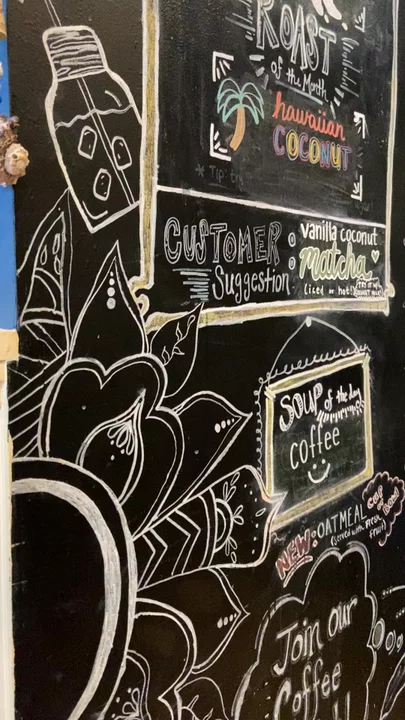 ROAST
of the Month
hawaiian
COCONUT
* Tip:
CUSTOMER :
Suggestion
vanilla coconut
matcha
(iced or hot!)
SOUP of the day
coffee
NEW: OATMEAL
(served with fresh
Fruit)
Join our
Coffee